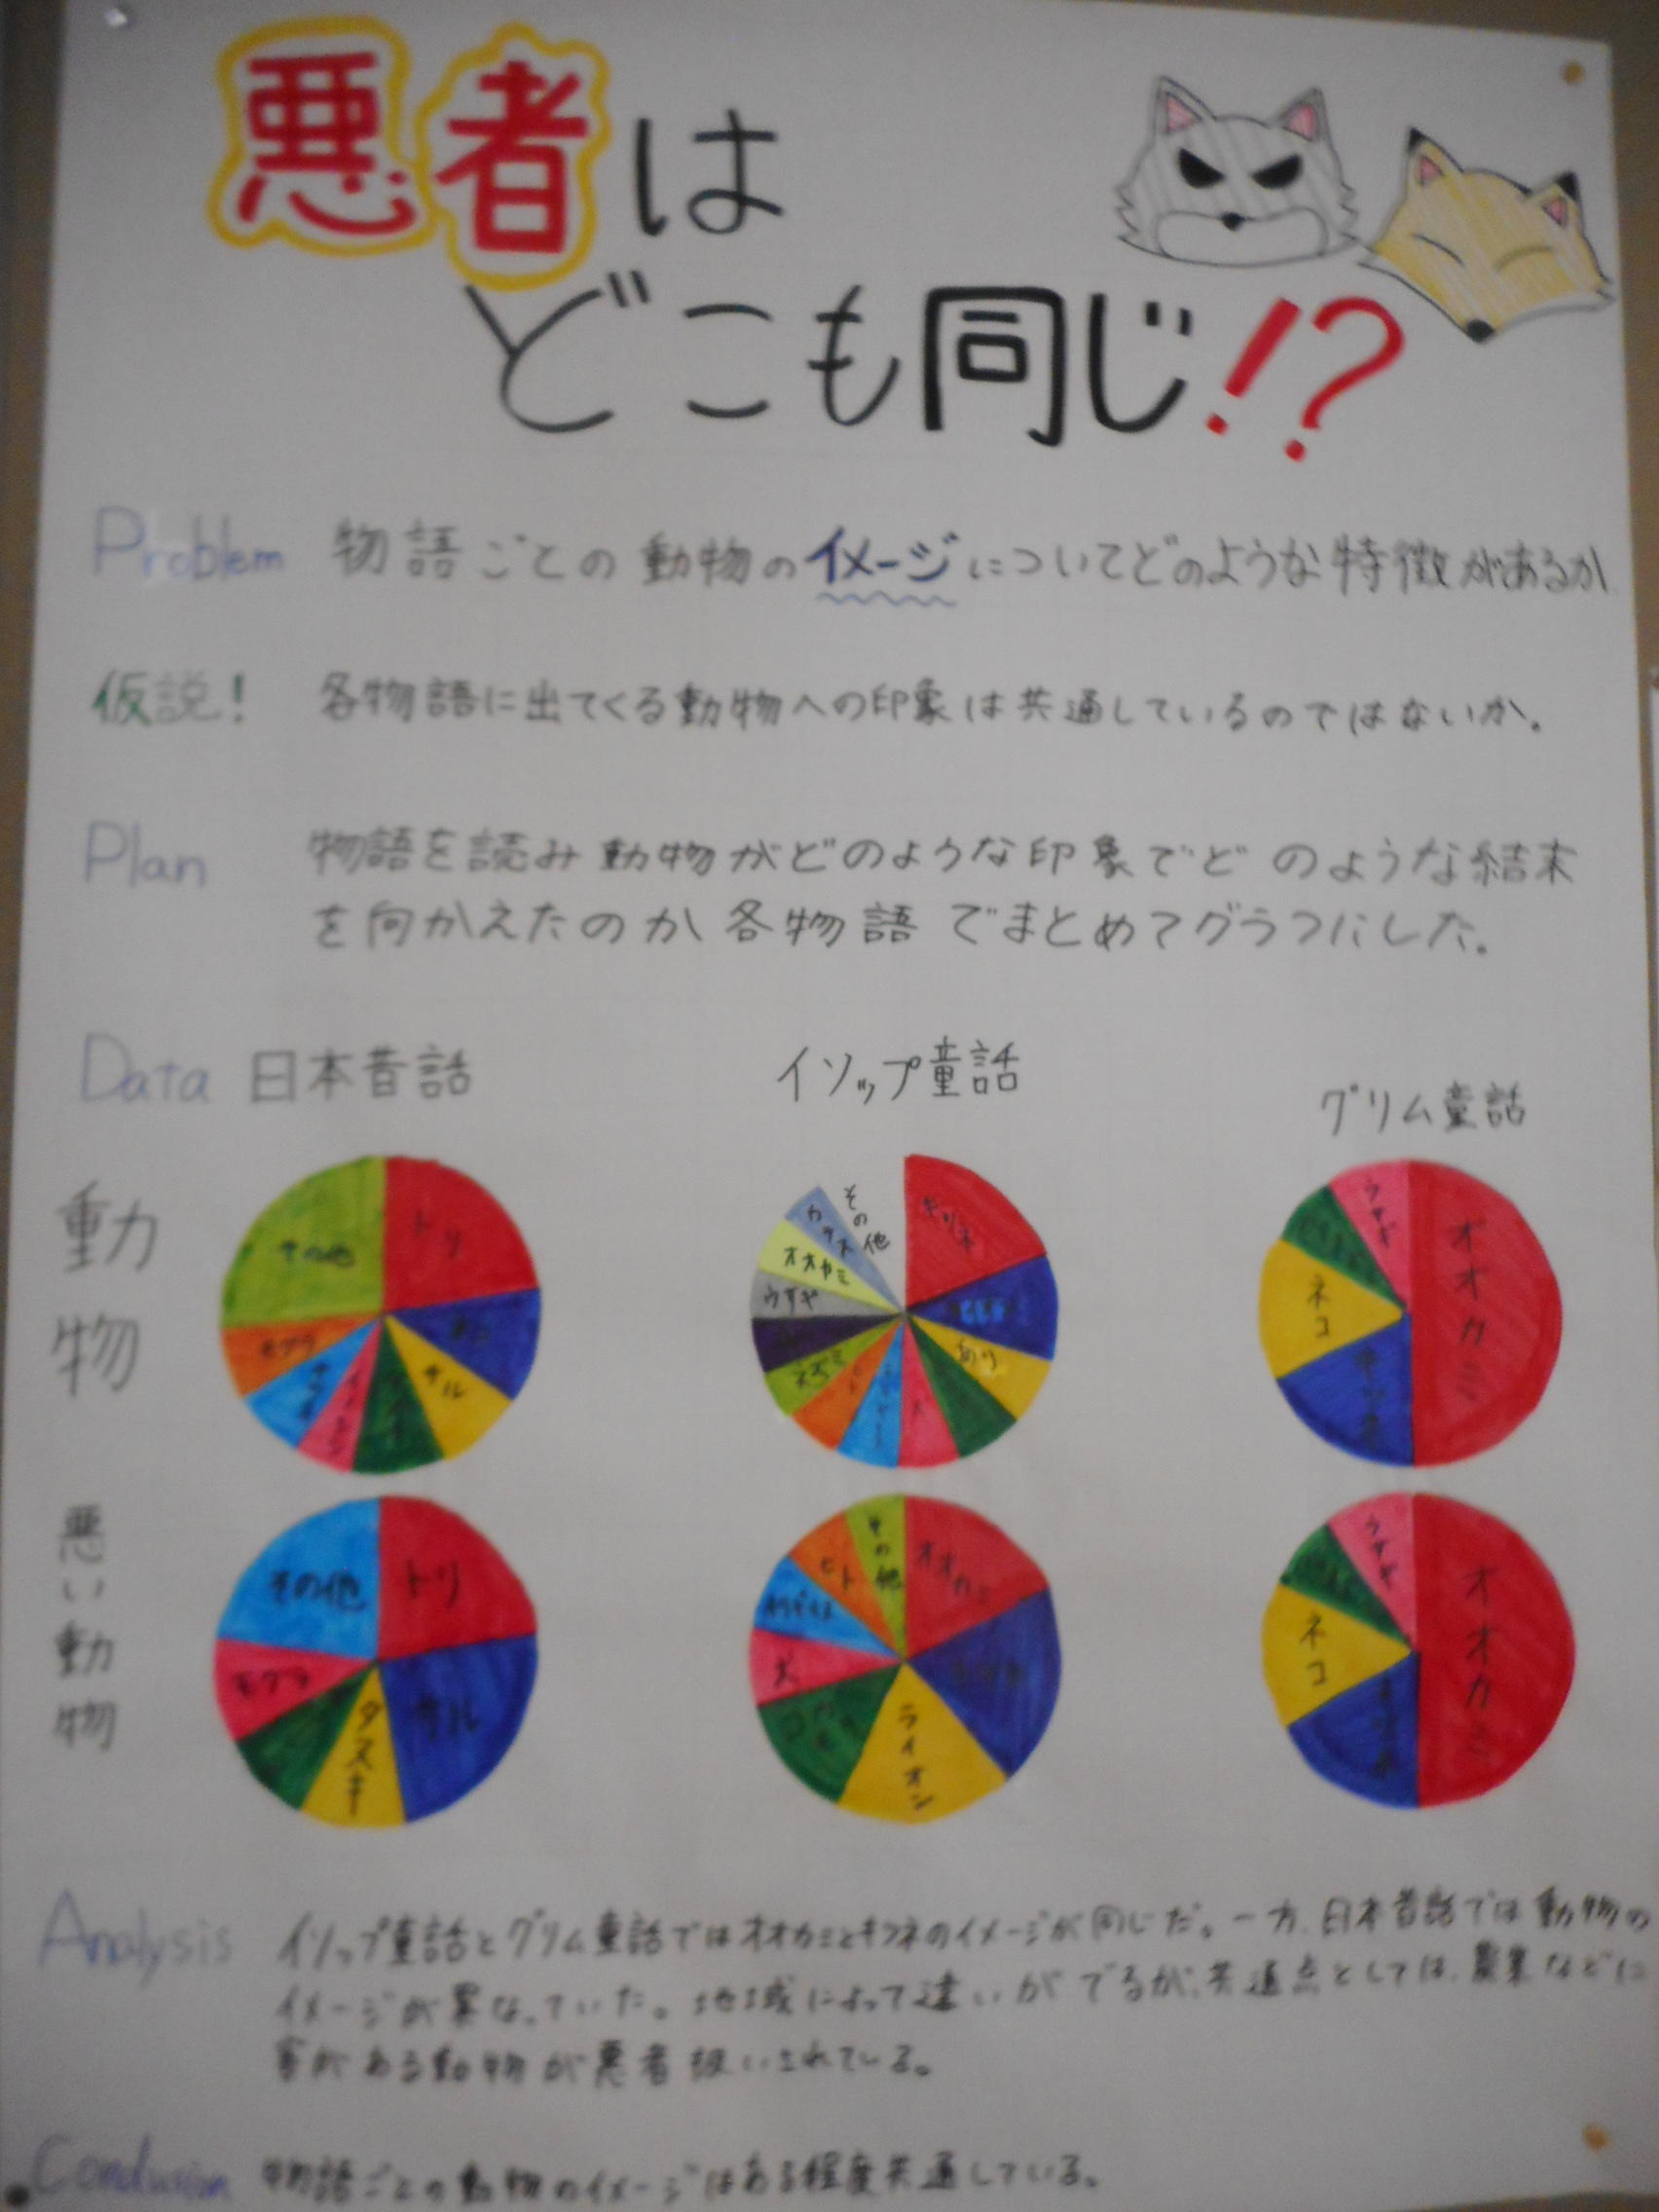 悪者は
どこも同じ!?
Problem 物語ごとの動物のイメージについてどのような特徴があるか
仮説! 各物語に出てくる動物への印象は共通しているのではないか。
Plan 物語を読み動物がどのような印象でどのような結末
を向かえたのか各物語でまとめてグラフにした。
Data 日本昔話
イソップ童話
グリム童話
動物
トリ
サル
モグラ
その他
キツネ
あり
犬
ネズミ
うさぎ
オオカミ
カラス
その他
オオカミ
キツネ
ネコ
ウサギ
悪い動物
トリ
サル
タヌキ
モグラ
その他
オオカミ
ライオン
犬
ヒト
その他
オオカミ
ネコ
ウサギ
Analysis イソップ童話とグリム童話ではオオカミとキツネのイメージが同じだ。一方、日本昔話では動物の
イメージが異なっていた。地域によって違いがでるが、共通点としては、農業などに
害がある動物が悪者扱いされている。
Conclusion 物語ごとの動物のイメージはある程度共通している。